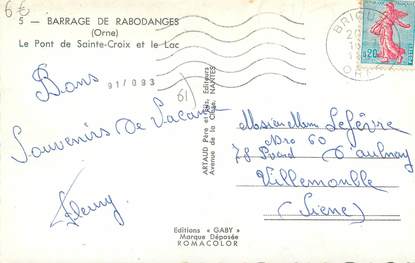 6€
5 - BARRAGE DE RABODANGES
(Orne)
Le Pont de Sainte-Croix et le Lac
91/093
61
Bons
Souvenirs de Vacances
Fleury
ARTAUD Père et Fils, Éditeurs
Avenue de la Close, NANTES
Editions "GABY"
Marque Déposée
ROMACOLOR
BRIOU
ORNE
0,20
Lefèvre
Nro 60
78 d'aulnay
Villemomble
(Seine)